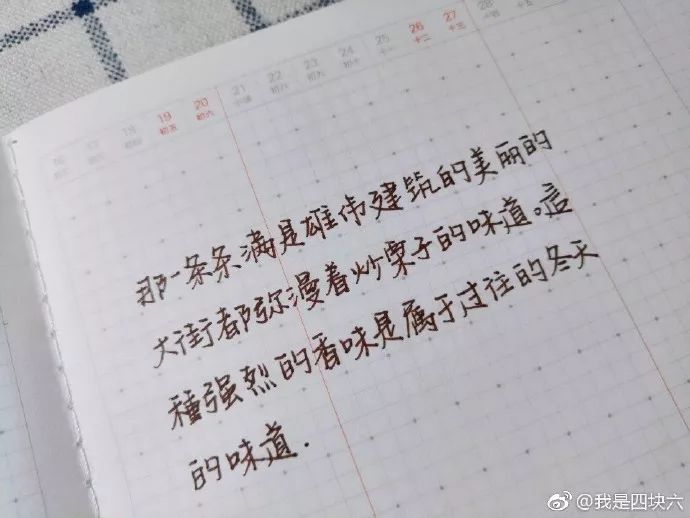 18 19 20 21 22 23 24 25 26 27 28
初五 初六 初八 初九 初十 十一 十二 十三 十四
那一条条满是雄伟建筑的美丽的
大街都弥漫着炒栗子的味道。這
種强烈的香味是属于过往的冬天
的味道.
@我是四块六